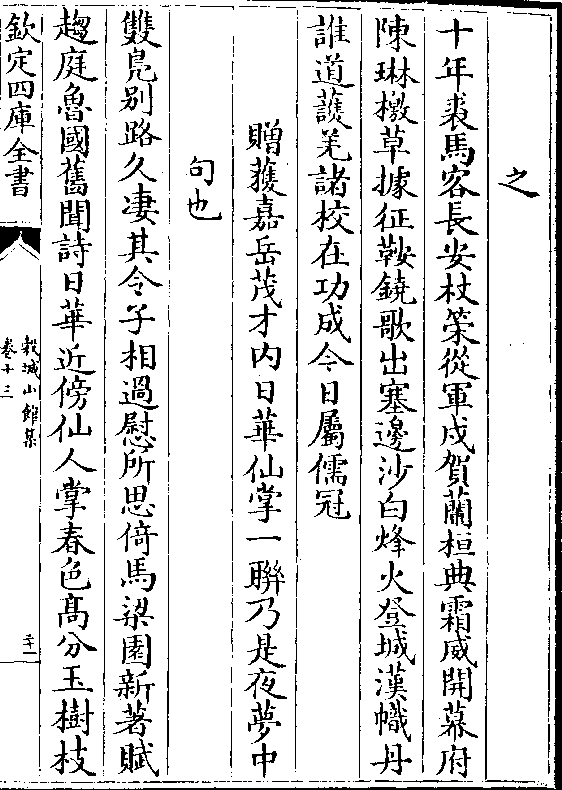 之
十年裘馬客長安杖策從軍戍賀蘭桓典霜威開幕府
陳琳檄草據征鞍鐃歌出塞邊沙白烽火登城漢幟丹
誰道護羌諸校在功成今日屬儒冠
贈蔣嘉岳茂才内日華仙掌一聯乃是夜夢中
句也
雙鳬别路久凄其令子相過慰所思倚馬梁園新著賦
趨庭魯國舊聞詩日華近傍仙人掌春色髙分玉樹枝
欽定四庫全書
穀城山館集
卷十三
二十一